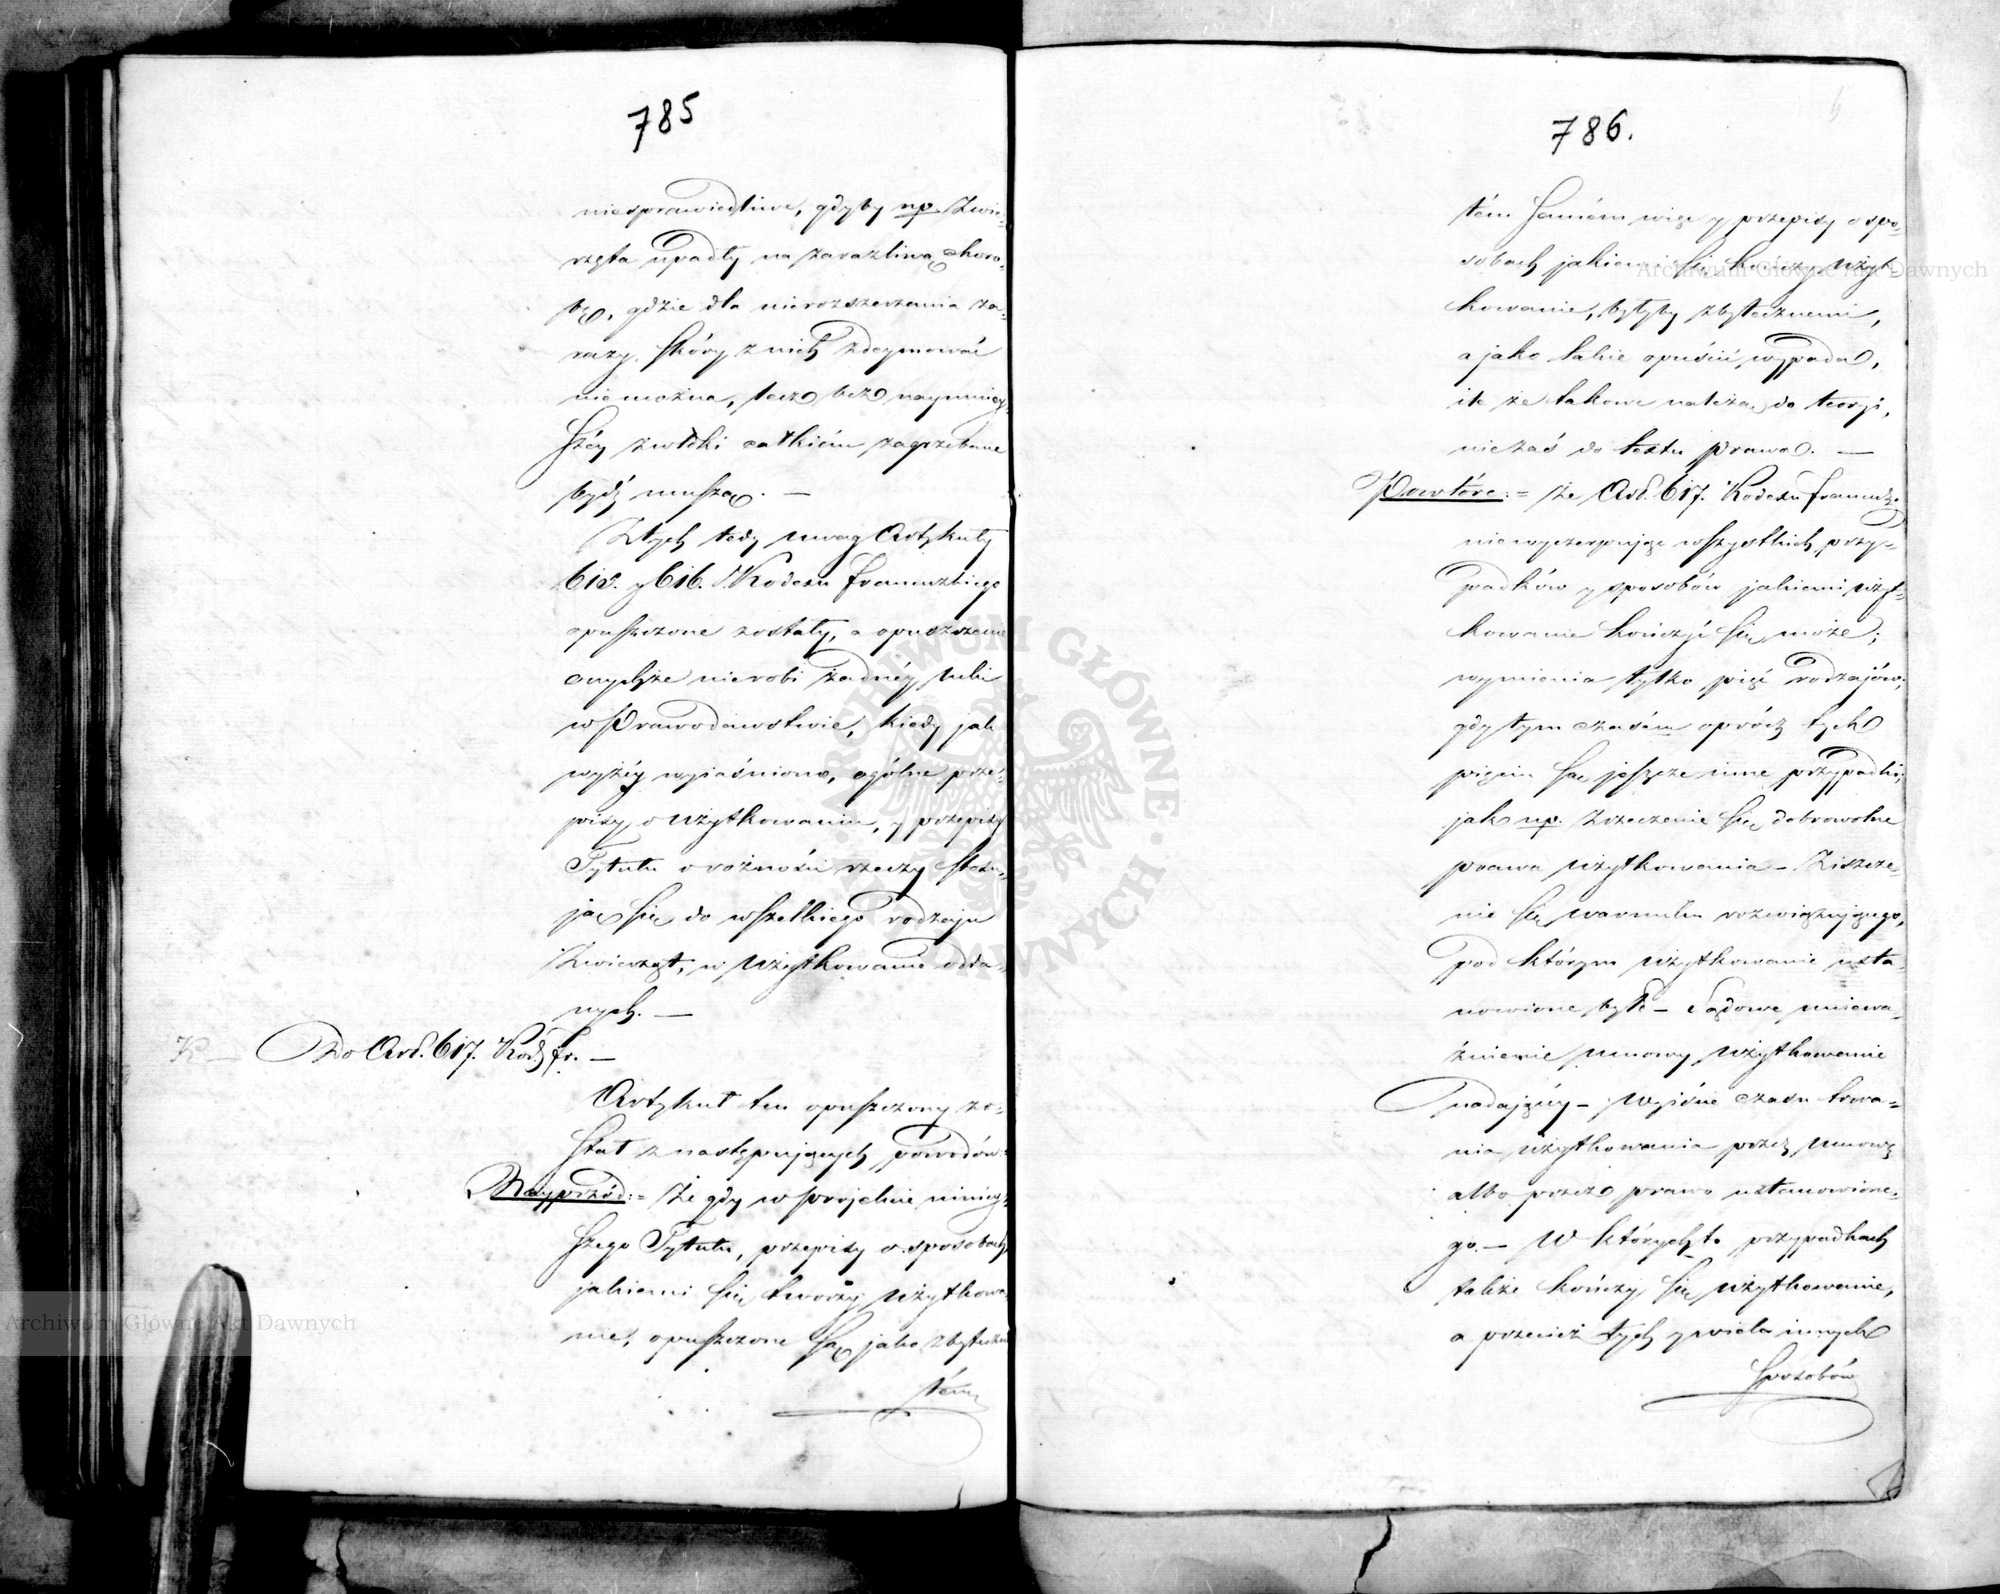 785
niesprawiedliwe, gdyby np. Zwie-
rzęta upadły na zaraźliwą choro-
bę, gdzie dla nierozszerzenia za-
razy, skóry z nich zdeymować
niemożna, lecz bez naymniey-
széy zwłoki całkiém zagrzebane
bydź muszą. —
Z tych tedy uwag Artykuły
615. y 616. Kodexu francuzkiego
opuszczone zostały, a opuszczenie
onychże nierobi żadnéy luki
w Prawodawstwie, kiedy jak
wyżéy wyiaśniono, ogólne prze-
pisy o użytkowaniu, y przepisy
Tytułu o rożności rzeczy stosu-
ją się do wszelkiego rodzaju
Zwierząt, w użytkowanie odda-
nych. —
K — Do Art. 617. Kod. fr. —
Artykuł ten opuszczony zo-
stał z następujących powodów:
Nayprzód:= Że gdy w projekcie niniey-
szego Tytułu, przepisy o sposobach
jakiemi się tworzy użytkowa-
nie, opuszczone są jako zbyteczne
tém
786.
tém samém więc y przepisy o spo-
sobach jakiemi się kończy użyt-
kowanie, byłyby zbytecznemi,
a jako takie opuścić wypada,
ile że takowe należą do teoryi,
nie zaś do textu prawa. —
Powtóre:= że Art. 617. Kodexu francuzk:
niewyczerpując wszystkich przy-
padków y sposobów jakiemi użyt-
kowanie kończyć się może;
wymienia tylko pięć rodzajów,
gdy tym czasém oprócz tych
pięciu są jeszcze inne przypadki,
jak np. Zrzeczenie się dobrowolne
prawa użytkowania — Ziszcze-
nie się warunku rozwiązującego,
pod którym użytkowanie usta-
nowione było — Sądowe uniewa-
żnienie umowy użytkowanie
nadającéy — Wyiście czasu trwa-
nia użytkowania przez umowę
albo przez prawo ustanowione-
go. — W których to przypadkach
także kończy się użytkowanie,
a przecież tych y wiela innych
sposobów
Archiwum Główne Akt Dawnych
Archiwum Główne Akt Dawnych
ARCHIWUM GŁÓWNE AKT DAWNYCH